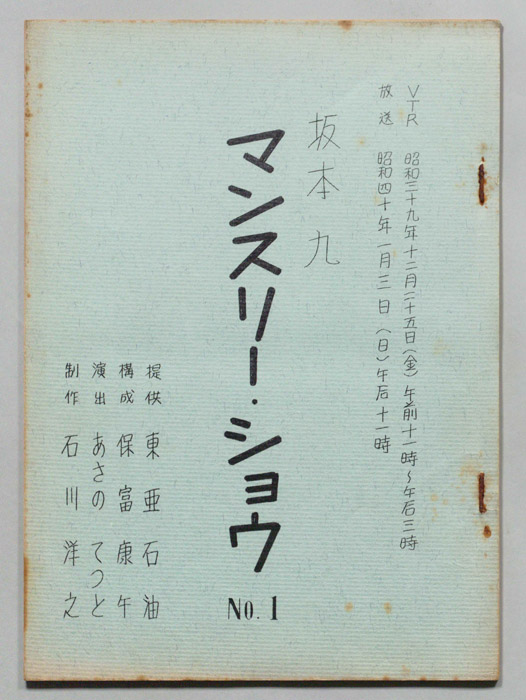 VTR 昭和三十九年十二月二十五日(金)午前十一時~午后三時
放送 昭和四十年一月三日(日)午后十一時
坂本九
マンスリー・ショウ
No.1
提供 東亜石油
構成 保富康午
演出 あさのてつと
制作 石川洋之